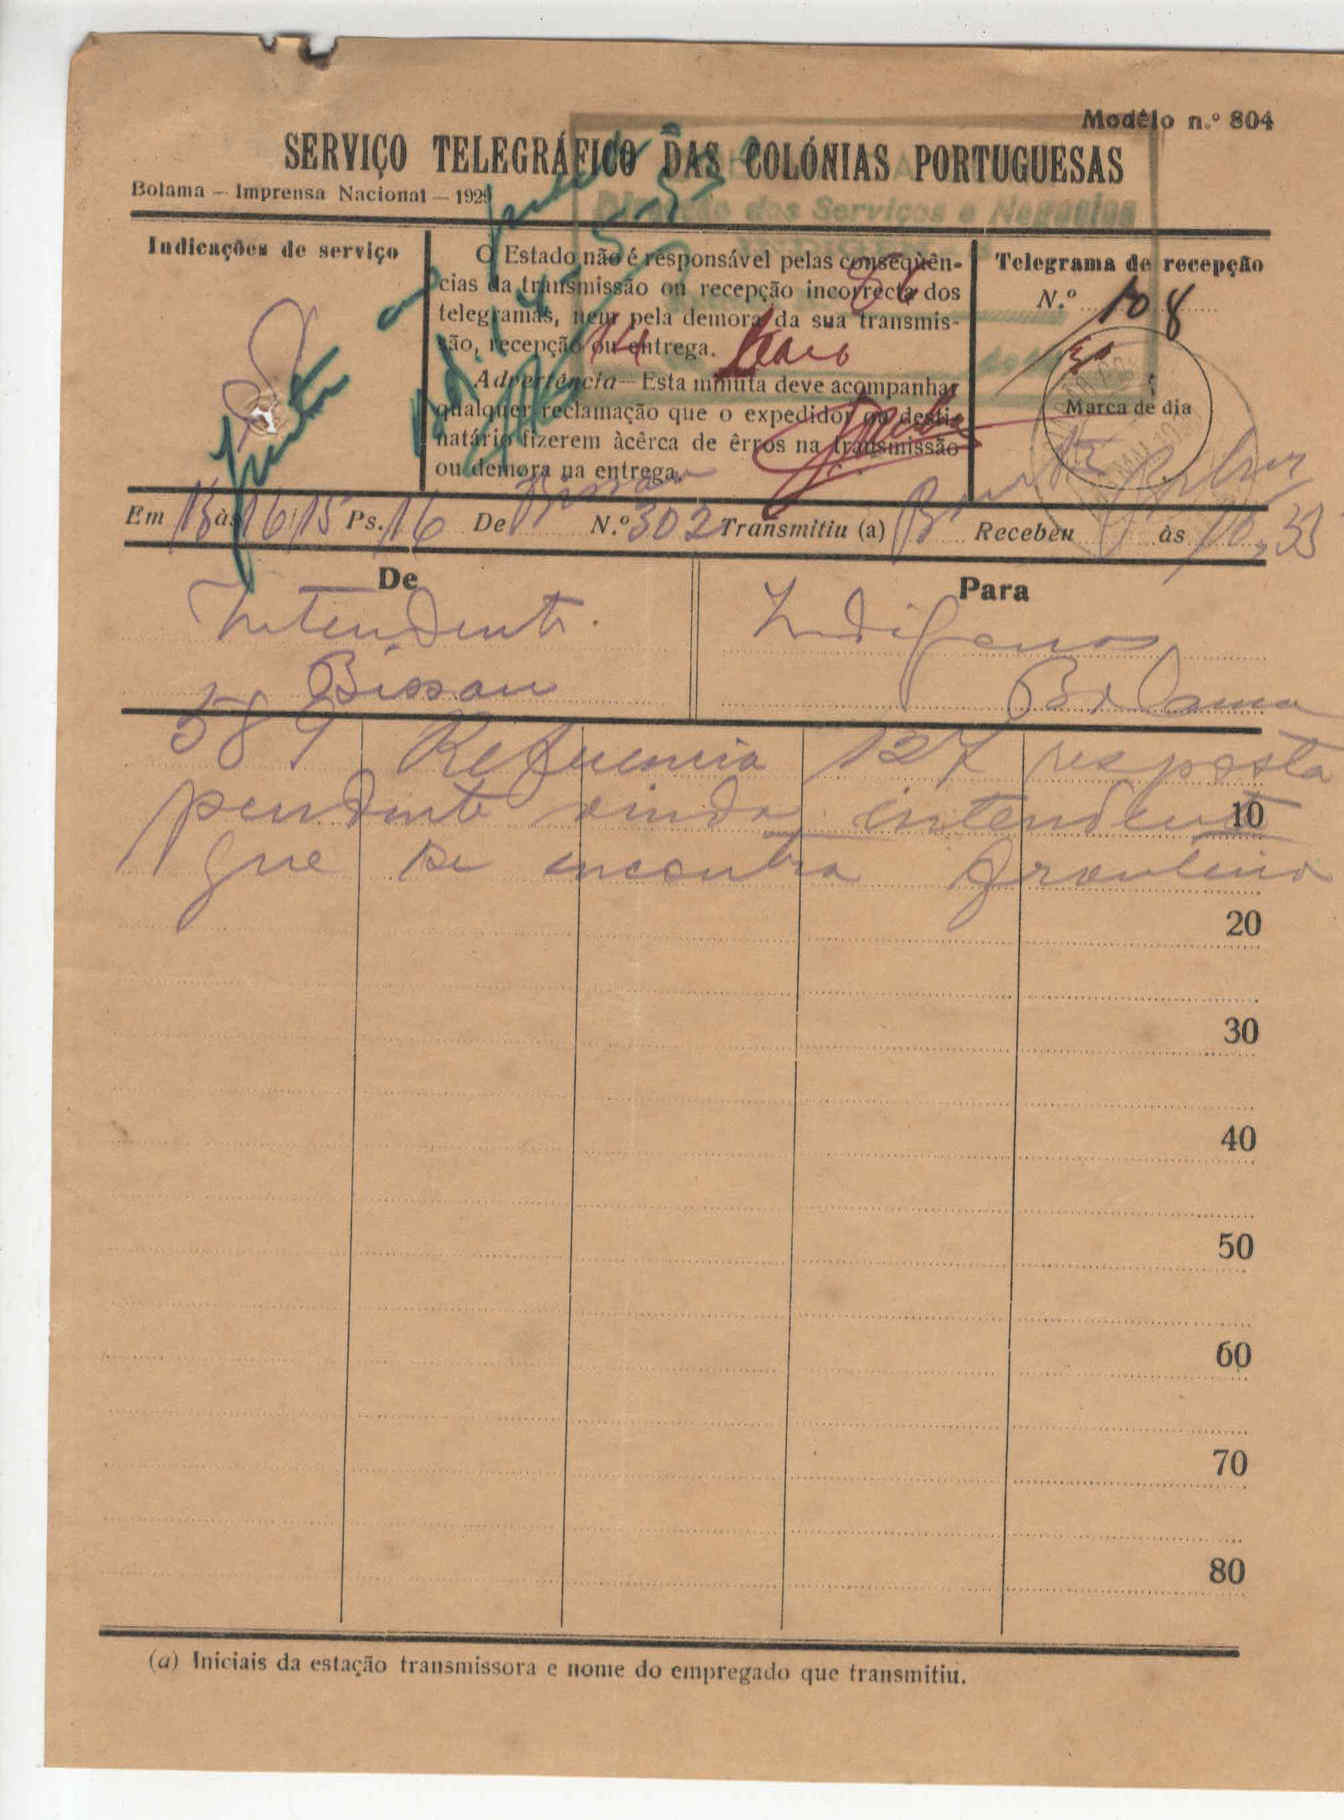 Modêlo n.º 804
SERVIÇO TELEGRÁFICO DAS COLÓNIAS PORTUGUESAS
Bolama — Imprensa Nacional — 1929
Direcção dos Serviços e Negócios
Indicações de serviço
O Estado não é responsável pelas conseqüên-
cias da transmissão ou recepção incorrecta dos
telegramas, nem pela demora da sua transmis-
são, recepção ou entrega.
Advertência — Esta minuta deve acompanhar
qualquer reclamação que o expedidor ou desti-
natário fizerem àcêrca de êrros na transmissão
ou demora na entrega.
Telegrama de recepção
N.º 108
Marca de dia
14 Maio
Em 13 às 16,15 Ps. 16 De Bissau N.º 302 Transmitiu (a) Recebeu às
De
Para
Intendente.
Bissau
Indigenas
Bolama
589 Referencia 127 resposta
pendente vinda intendente
10
que se encontra
20
30
40
50
60
70
80
(a) Iniciais da estação transmissora e nome do empregado que transmitiu.